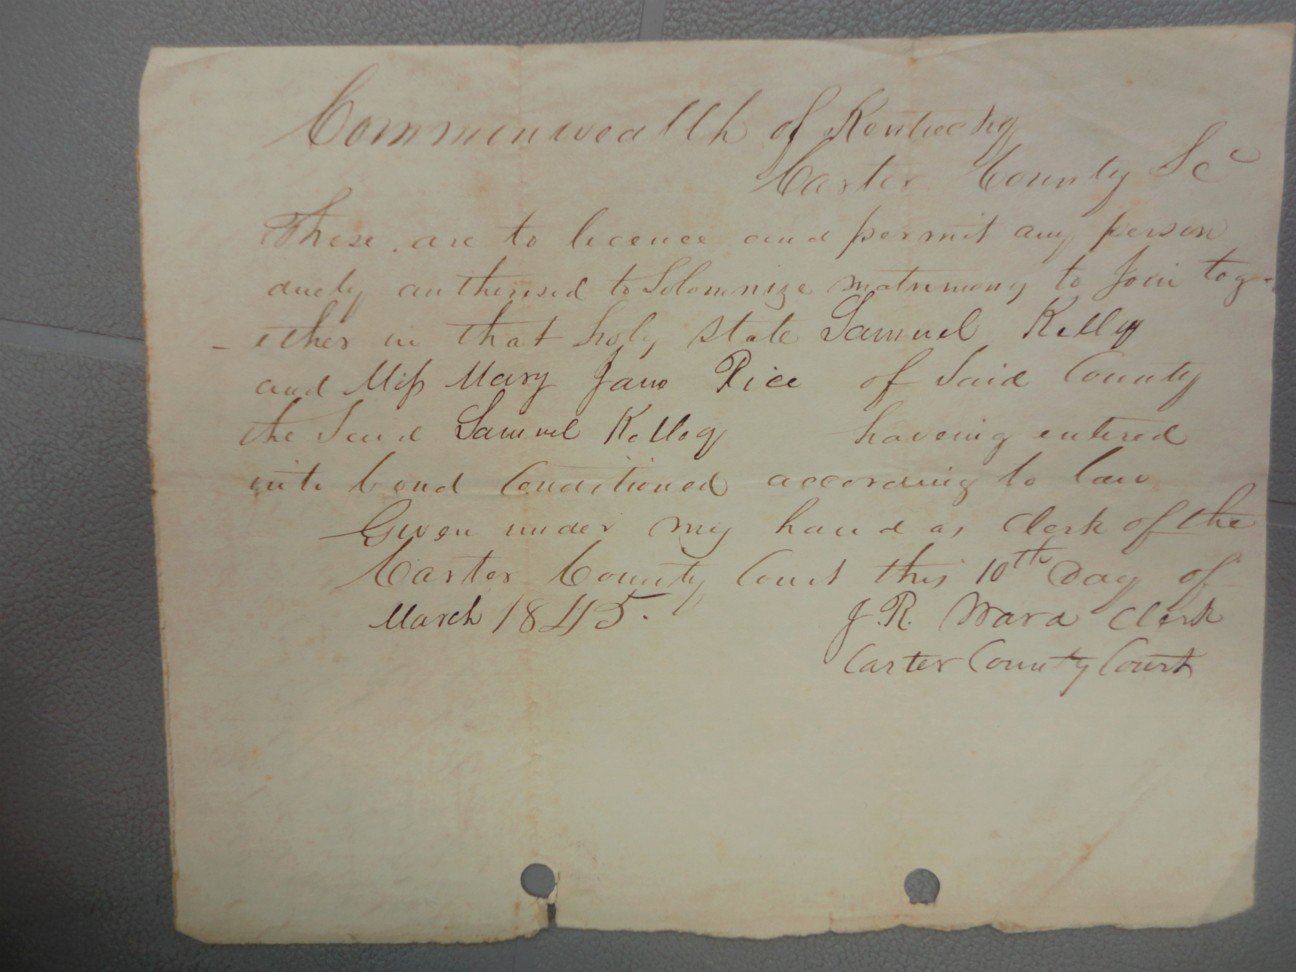 Commonwealth of Kentucky
Carter County Sc
These are to licence and permit any person
duely authorised to Solomnize matrimony to Join tog-
- ether in that holy state Samuel Kellog
and Miss Mary Jane Rice of Said County
the Said Samuel Kellog haveing entered
into bond Conditioned according to law
Given under my hand as Clerk of the
Carter County Court this 10th Day of
March 1845.
J. R. Ward Clerk
Carter County Court